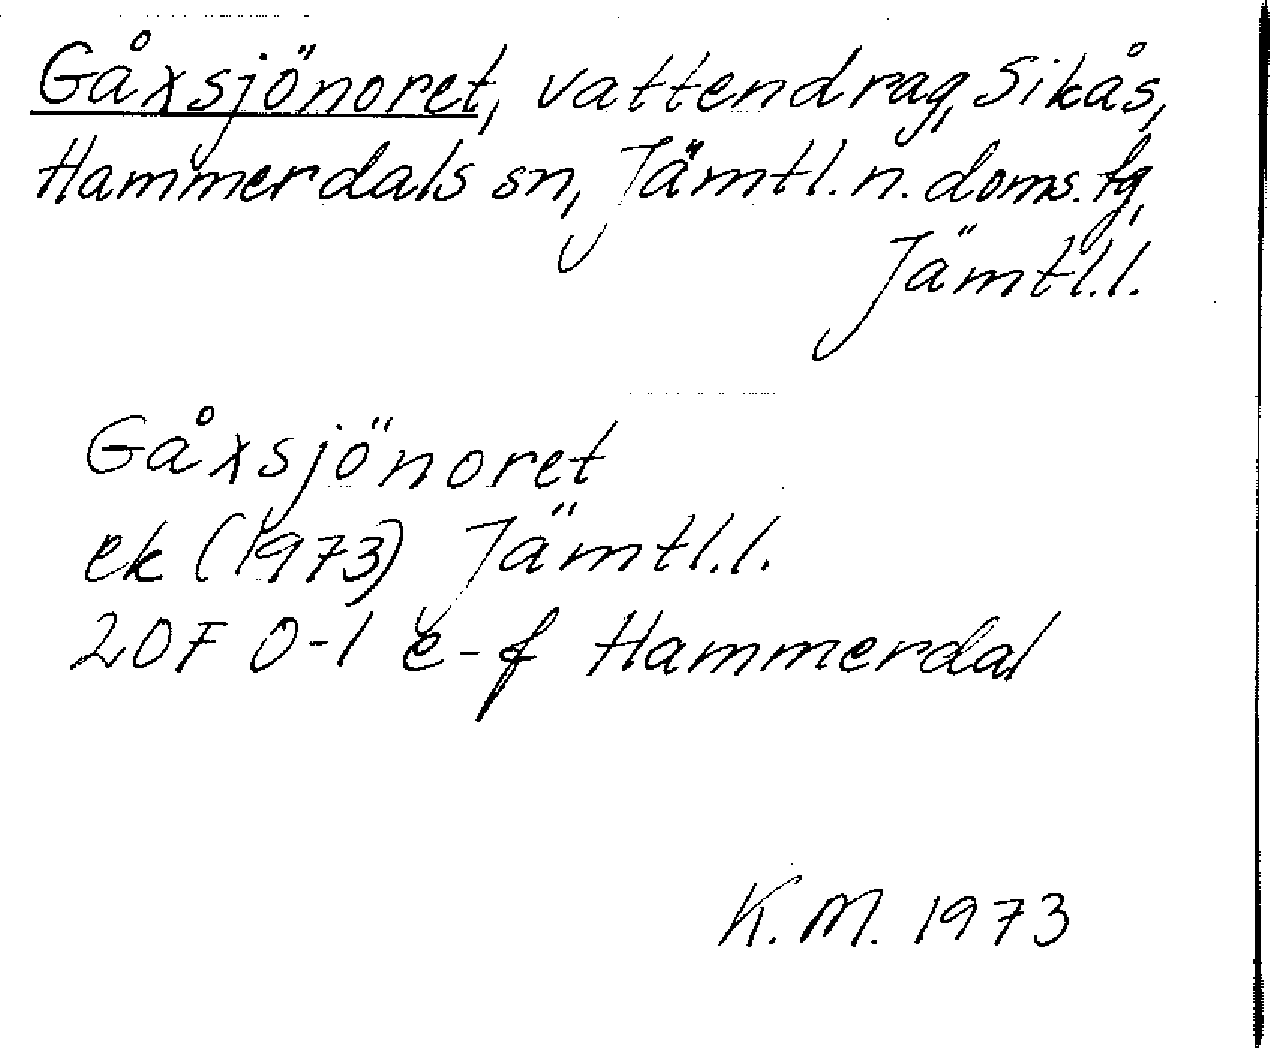 Gåxsjönoret, vattendrag, Sikås,
Hammerdals sn, Jämtl. n. doms. tg,
Jämtl.l.
Gåxsjönoret
ek (1973) Jämtl.l.
20F 0-1 e-f Hammerdal
K.M. 1973